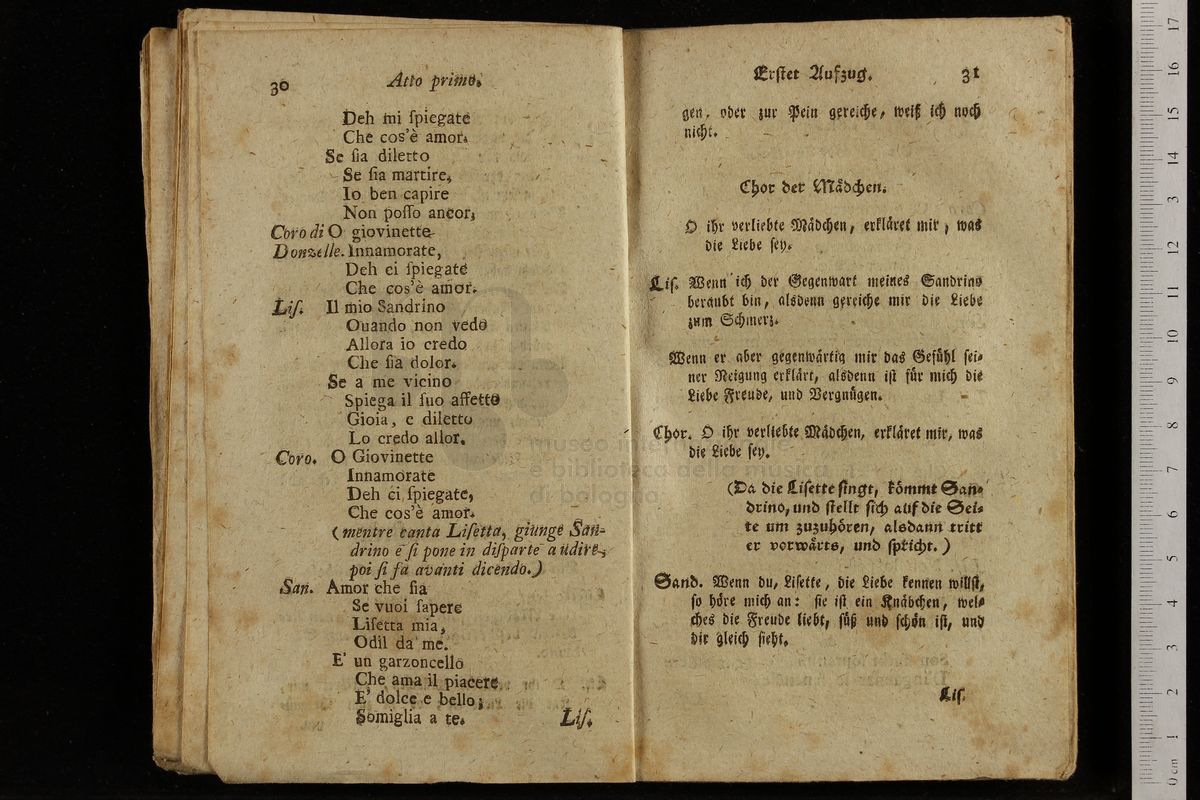 30 Atto primo.
Deh mi ſpiegate
Che cos'è amor.
Se ſia diletto
Se ſia martire,
Io ben capire
Non poſſo ancor,
Coro di O giovinette
Donzelle. Innamorate,
Deh ci ſpiegate
Che cos'è amor.
Liſ. Il mio Sandrino
Quando non vedo
Allora io credo
Che ſia dolor.
Se a me vicino
Spiega il ſuo affetto
Gioia, e diletto
Lo credo allor.
Coro. O Giovinette
Innamorate
Deh ci ſpiegate,
Che cos'è amor.
(mentre canta Liſetta, giunge San-
drino e ſi pone in diſparte a udire,
poi ſi fa avanti dicendo.)
San. Amor che ſia
Se vuoi ſapere
Liſetta mia,
Odil da me.
E' un garzoncello
Che ama il piacere
E' dolce e bello;
Somiglia a te.
Liſ.
Erſter Aufzug. 31
gen, oder zur Pein gereiche, weiß ich noch
nicht.
Chor der Mädchen.
O ihr verliebte Mädchen, erkläret mir, was
die Liebe ſey.
Liſ. Wenn ich der Gegenwart meines Sandrino
beraubt bin, alsdenn gereiche mir die Liebe
zum Schmerz.
Wenn er aber gegenwärtig mir das Gefühl ſei-
ner Neigung erklärt, alsdenn iſt für mich die
Liebe Freude, und Vergnügen.
Chor. O ihr verliebte Mädchen, erkläret mir, was
die Liebe ſey.
(Da die Liſette ſingt, kömmt San-
drino, und ſtellt ſich auf die Sei-
te um zuzuhören, alsdann tritt
er vorwärts, und ſpricht.)
Sand. Wenn du, Liſette, die Liebe kennen willſt,
ſo höre mich an: ſie iſt ein Knäbchen, wel-
ches die Freude liebt, ſüß und ſchön iſt, und
dir gleich ſieht.
Liſ.
museo internazionale
e biblioteca della musica
di bologna
0 cm 1 2 3 4 5 6 7 8 9 10 11 12 13 14 15 16 17